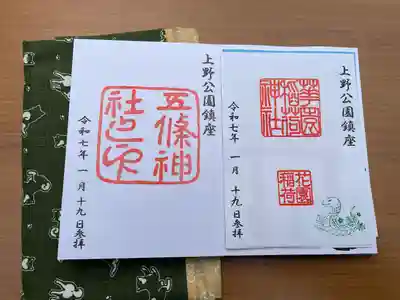 上野公園鎮座
五條神
社之印
令和七年 一月 十九日参拝
上野公園鎮座
花園
稲荷
神社
花園
稲荷
令和七年 一月 十九日参拝